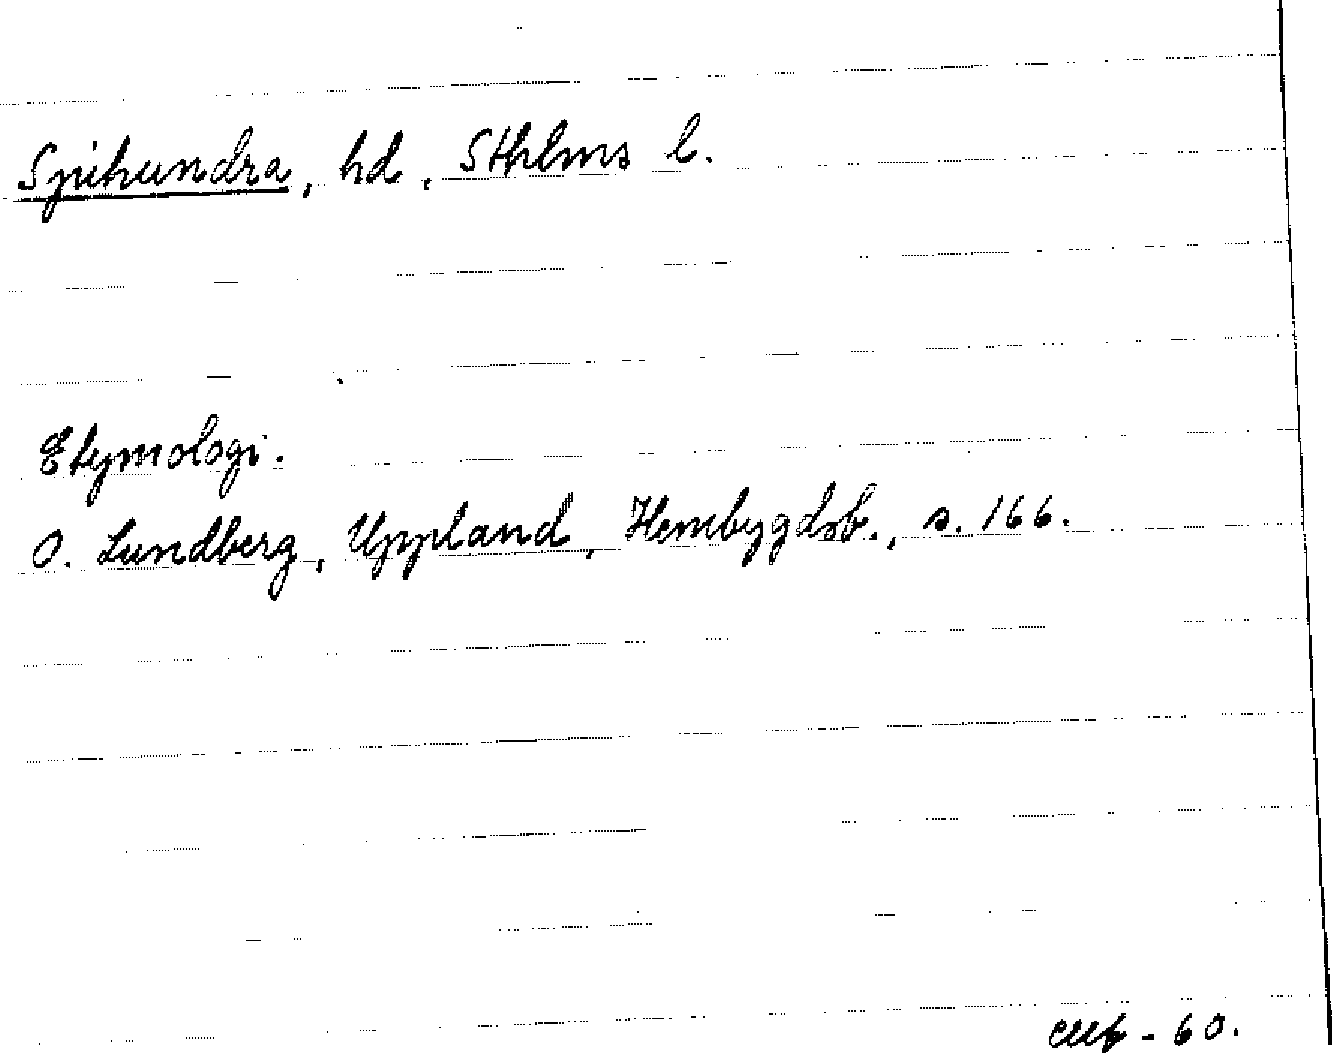 Sjuhundra, hd, Sthlms l.
Etymologi.
O. Lundberg, Uppland, Hembygdsb., s. 166.
- 60.